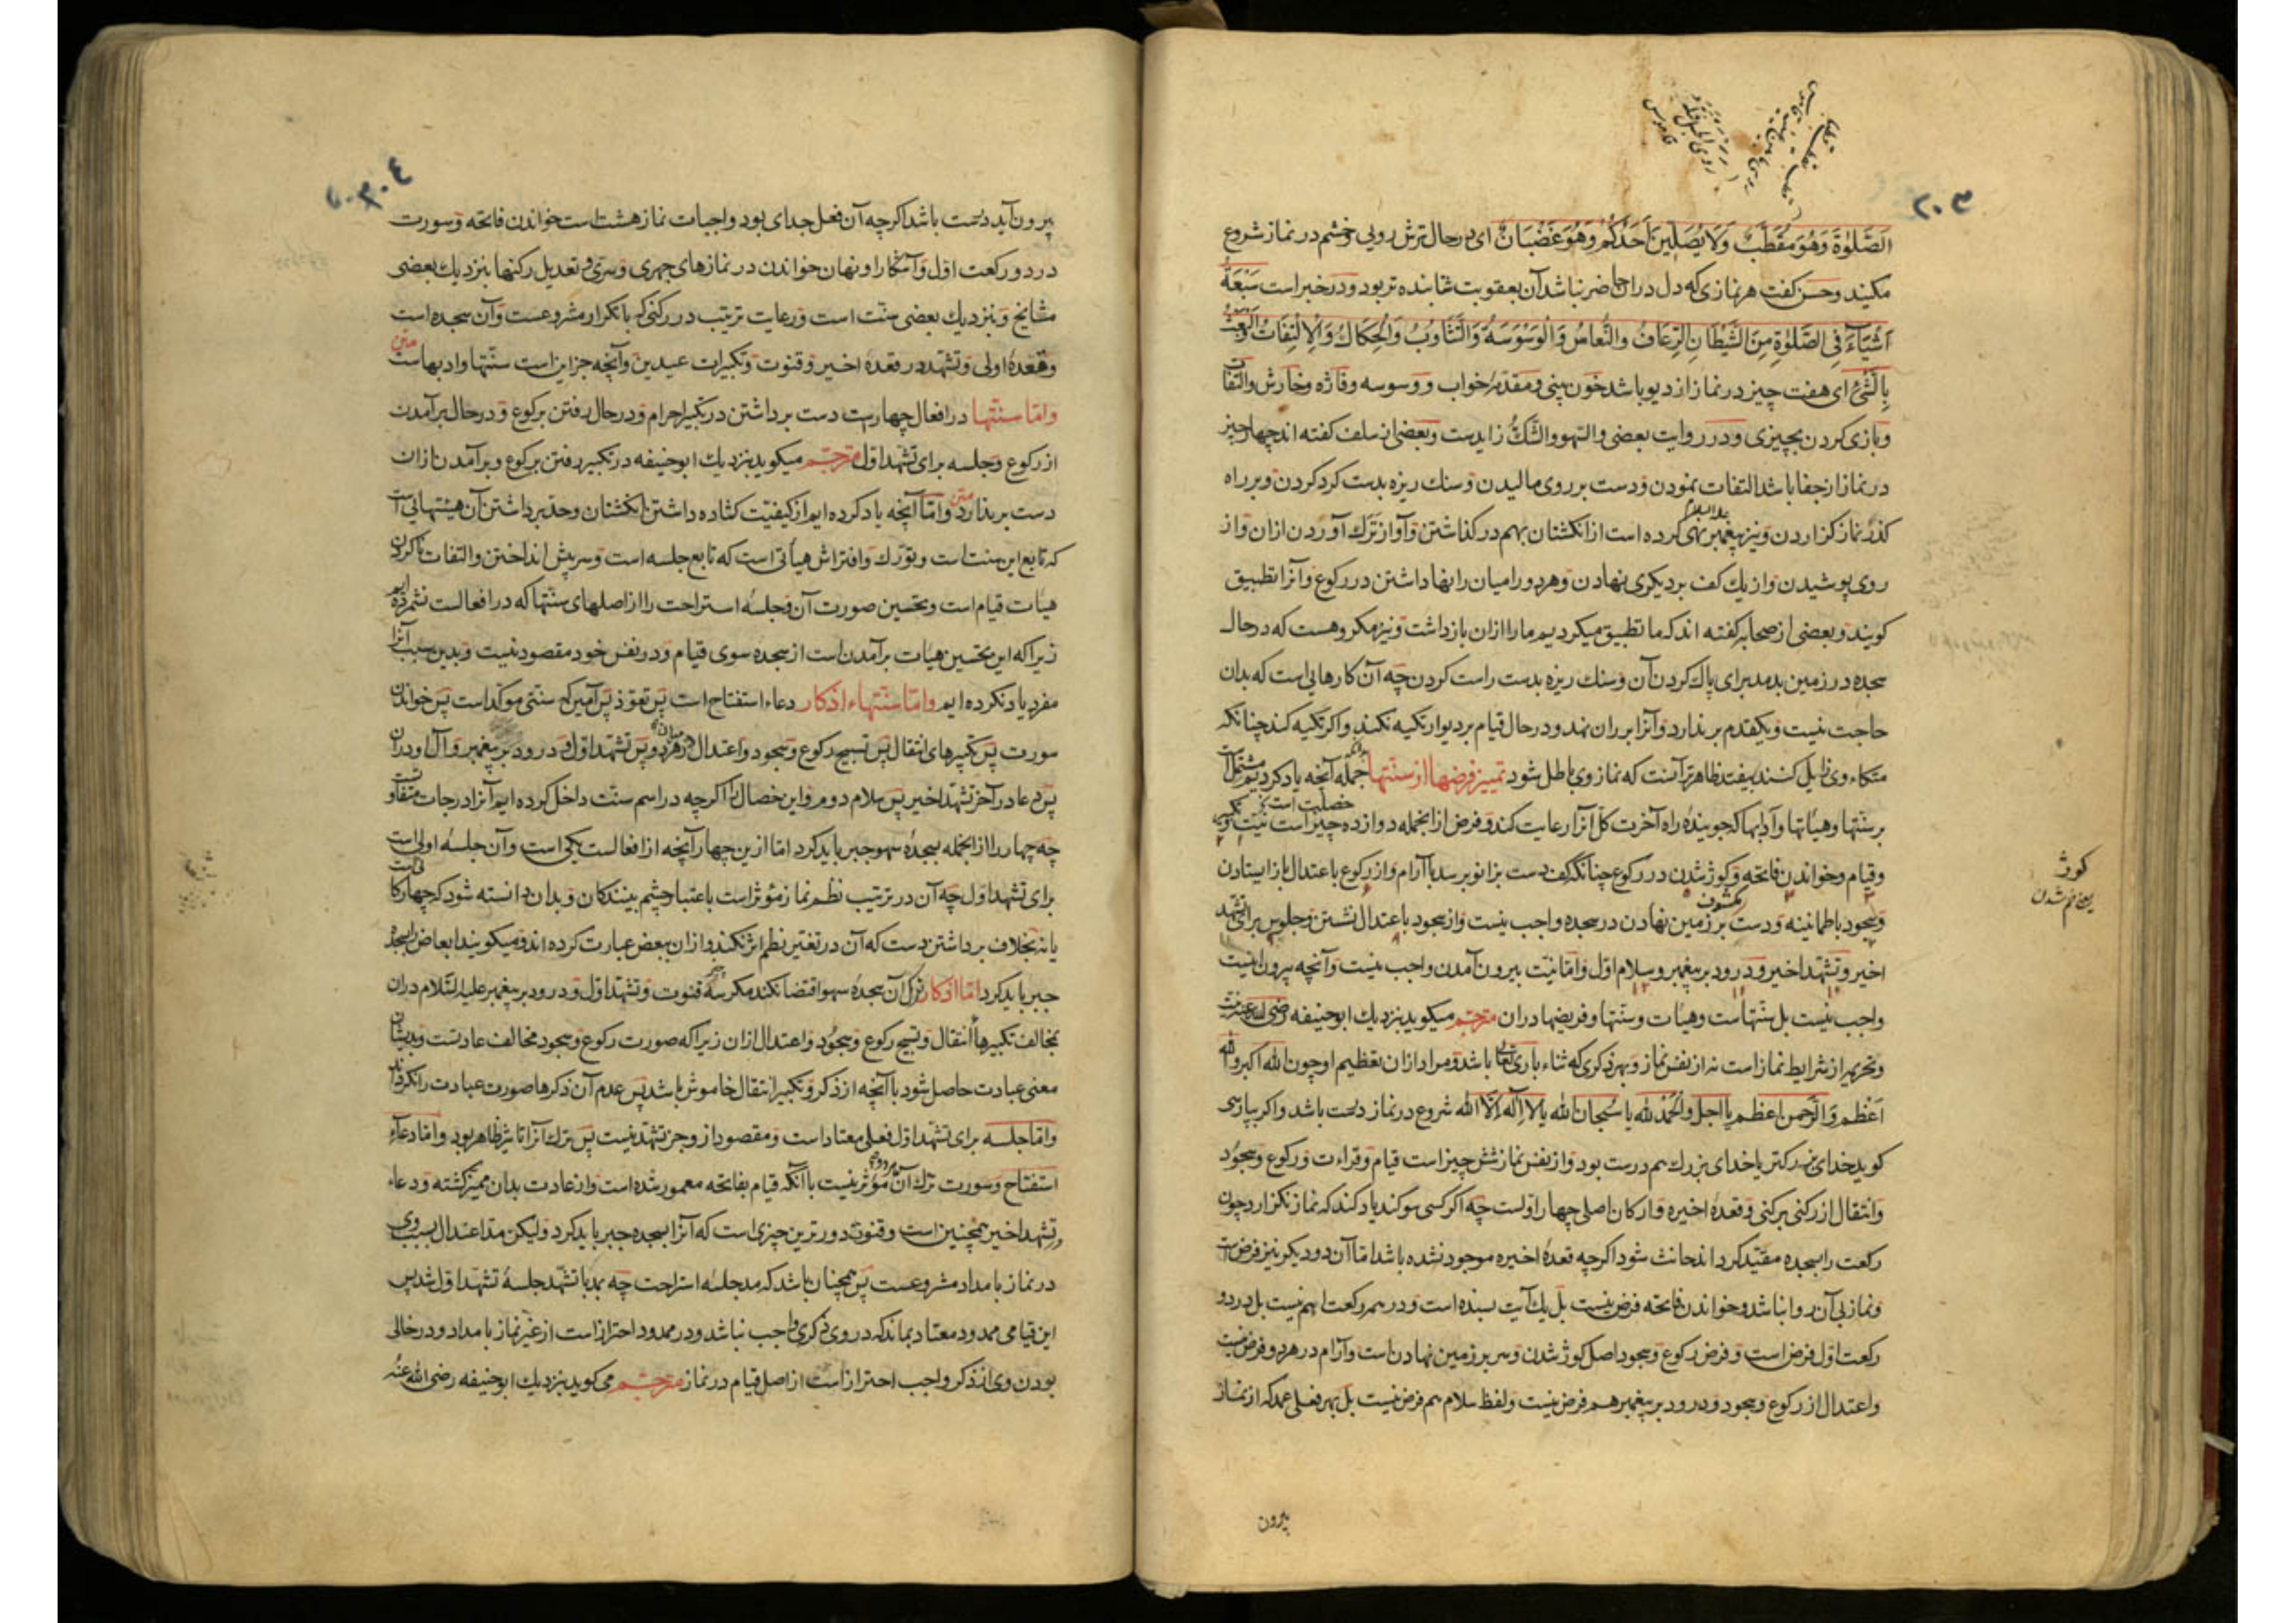 ۲۰۳
الصَّلوٰةَ وَهُوَ مُقَطَّبٌ وَلَا يُصَلِّيَنَّ اَحَدُكُمْ وَهُوَ غَضْبَانٌ ای در حال ترش رویی و خشم در نماز شروع
مکنید وحسن کفت هر نمازی که دل دران حاضر نباشد آن بعقوبت شتابنده تر بود ودر خبر است سَبْعَةُ
اَشْيَآءَ فِی الصَّلوٰةِ مِنَ الشَّيْطَانِ الرُّعَافُ والنُّعَاسُ وَالْوَسْوَسَةُ وَالتَّثَاوُبُ وَالْحِكَاكُ وَالْاِلْتِفَاتُ وَالْعَبَثُ
بِالشَّیْءِ ای هفت چیز در نماز از دیو باشد خون بینی ومقدمه خواب و وسوسه وفاژه وخارش والتفات
وبازی کردن بچیزی ودر روایت بعضی والسهو والشك زایدست وبعضی از سلف کفته اند چهار چیز
در نماز از جفا باشد التفات نمودن ودست بر روی مالیدن وسنك ریزه بدست کرد کردن وبر راه
کذر نماز کزاردن ونیز پیغمبر علیه السلام نهی کرده است از انکشتان بهم در کذاشتن وآواز ترك آوردن ازان واز
روی پوشیدن واز یك کف بر دیکری نهادن وهر دو را میان رانها داشتن در رکوع وآنرا تطبیق
کویند وبعضی از صحابه کفته اند که ما تطبیق میکردیم ما را ازان بازداشت ونیز مکروهست که در حال
سجده در زمین بدمد برای پاك کردن آن وسنك ریزه بدست راست کردن چه آن کارهایی است که بدان
حاجت نیست ویکقدم بر ندارد وآنرا بر ران نهد ودر حال قیام بر دیوار تکیه نکند واکر تکیه کند چنانکه
متکاء وی زایل کنند بیفتد ظاهرتر آنست که نماز وی باطل شود تمییز فرضها از سنتها جمله آنچه یاد کردیم مشتمل است
بر سنتها وهیأتها وآدابها که جوینده راه آخرت کل آنرا رعایت کند وفرض ازانجمله دوازده چیز است نیت وتکبیر
وقیام وخواندن فاتحه وکوژ شدن در رکوع چنانکه کف دست بزانو برسد با آرام واز رکوع باعتدال باز ایستادن
وسجود باطمانینه ودست بر زمین نهادن در سجده واجب نیست واز سجود باعتدال نشستن وجلوس برای تشهد
اخیر وتشهد اخیر ودرود بر پیغمبر وسلام اول واما نیت بیرون آمدن واجب نیست وآنچه بیرون اینست
واجب نیست بل سنتهاست وهیأت وسنتها وفریضها دران مترجم میکوید بنزدیك ابوحنیفه رضی الله عنه نیت
وتحریمه از شرایط نماز است نه از نفس نماز وبهر ذکری که ثناء باری تعالی باشد ومراد ازان تعظیم او چون الله اکبر والله
اَعْظَم وَالرَّحمن اعظم یا اجل والْحَمْدُ لله یا سُبحان الله یا لا اِلٰهَ اِلَّا الله شروع در نماز درست باشد واکر بپارسی
کوید خدای بزرکتر یا خدای بزرك هم درست بود واز نفس نماز شش چیز است قیام وقراءت ورکوع وسجود
وانتقال از رکنی برکنی وقعدهٔ اخیره وارکان اصلی چهار اولست چه اکر کسی سوکند یاد کند که نماز نکزارد چون
رکعت را بسجده مقید کرداند حانث شود اکرچه قعدهٔ اخیره موجود نشده باشد اما آن دو دیکر نیز فرض است
ونماز بی آن روا نباشد وخواندن فاتحه فرض نیست بل یك آیت بسنده است ودر همه رکعتها هم نیست بل در دو
رکعت اول فرض است وفرض رکوع وسجود اصل کوژ شدن وسر بر زمین نهادن است وآرام در هر دو فرض نیست
واعتدال از رکوع وسجود ودرود بر پیغمبر هم فرض نیست ولفظ سلام هم فرض نیست بل بهر فعلی عمد که از نماز
بیرون
کوژ
یعنی خم شدن
۲۰۴
بیرون آید درست باشد اکرچه آن فعل جدای بود واجبات نماز هشت است خواندن فاتحه وسورت
در دو رکعت اول وآشکارا ونهان خواندن در نمازهای جهری وسری وتعدیل رکنها بنزدیك بعضی
مشایخ وبنزدیك بعضی سنت است ورعایت ترتیب در رکنی که با تکرار مشروعست وآن سجده است
وقعدهٔ اولی وتشهد در قعدهٔ اخیر وقنوت وتکبیرات عیدین وآنچه جز این است سنتها وادبهاست متن
واما سنتها در افعال چهارست دست برداشتن در تکبیر احرام ودر حال رفتن برکوع ودر حال برآمدن
از رکوع وجلسه برای تشهد اول مترجم میکوید بنزدیك ابوحنیفه در تکبیر رفتن برکوع وبرآمدن ازان
دست بر ندارد متن واما آنچه یاد کرده ایم از کیفیت کشاده داشتن انکشتان وحد برداشتن آن هیئتهایی است
که تابع این سنت است وتورك وافتراش هیأتی است که تابع جلسه است وسر پیش انداختن والتفات ناکردن
هیأت قیام است وتحسین صورت آن وجلسهٔ استراحت را از اصلهای سنتها که در افعالست نشمرده ایم
زیرا که این تحسین هیأت برآمدن است از سجده سوی قیام ودر نفس خود مقصود نیست وبدین سبب آنرا
مفرد یاد نکرده ایم واما سنتهاء اذکار دعاء استفتاح است پس تعوذ پس آمین که سنتی موکد است پس خواندن
سورت پس تکبیرهای انتقال پس تسبیح رکوع وسجود واعتدال از هر دو پس تشهد اول ودرود بر پیغمبر وآل او دران
پس دعا در آخر تشهد اخیر پس سلام دوم واین خصال را اکرچه در اسم سنت داخل کرده ایم آنرا درجات متفاوتست
چه چهار را ازانجمله بسجدهٔ سهو جبر باید کرد اما ازین چهار آنچه از افعالست یکی است وآن جلسهٔ اولی است
برای تشهد اول چه آن در ترتیب نظم نماز مؤثر است باعتبار چشم بینندکان وبدان دانسته شود که چهار رکعتی است
یا نه بخلاف برداشتن دست که آن در تغییر نظم اثر نکند وازان ببعض عبارت کرده اند ومیکویند ابعاض بسجده
جبر باید کرد اما اذکار ترك آن سجده سهو اقتضا نکند مکر سه قنوت وتشهد اول ودرود بر پیغمبر علیه السلام دران
بخالف تکبیرهاء انتقال وتسبیح رکوع وسجود واعتدال ازان زیرا که صورت رکوع وسجود مخالف عادتست وبدیشان
معنی عبادت حاصل شود با آنچه از ذکر وتکبیر انتقال خاموش باشد پس عدم آن ذکرها صورت عبادت را نکرداند
واما جلسه برای تشهد اول فعلی معتاد است ومقصود ازو جز تشهد نیست پس ترك آنرا تاثیر ظاهر بود واما دعاء
استفتاح وسورت ترك آن هر دو مؤثر نیست با آنکه قیام بفاتحه معمور شده است واز عادت بدان ممیز کشته ودعاء
در تشهد اخیر همچنین است وقنوت دورترین چیزی است که آنرا بسجده جبر باید کرد ولیکن مد اعتدال بسبب وی
در نماز بامداد مشروعست پس همچنان باشد که مد جلسهٔ استراحت چه بمد با تشهد جلسهٔ تشهد اول شد پس
این قیامی ممدود معتاد بماند که در وی ذکری واجب نباشد ودر ممدود احتراز است از غیر نماز بامداد ودر خالی
بودن وی از ذکر واجب احتراز است از اصل قیام در نماز مترجم می کوید بنزدیك ابوحنیفه رضی الله عنه